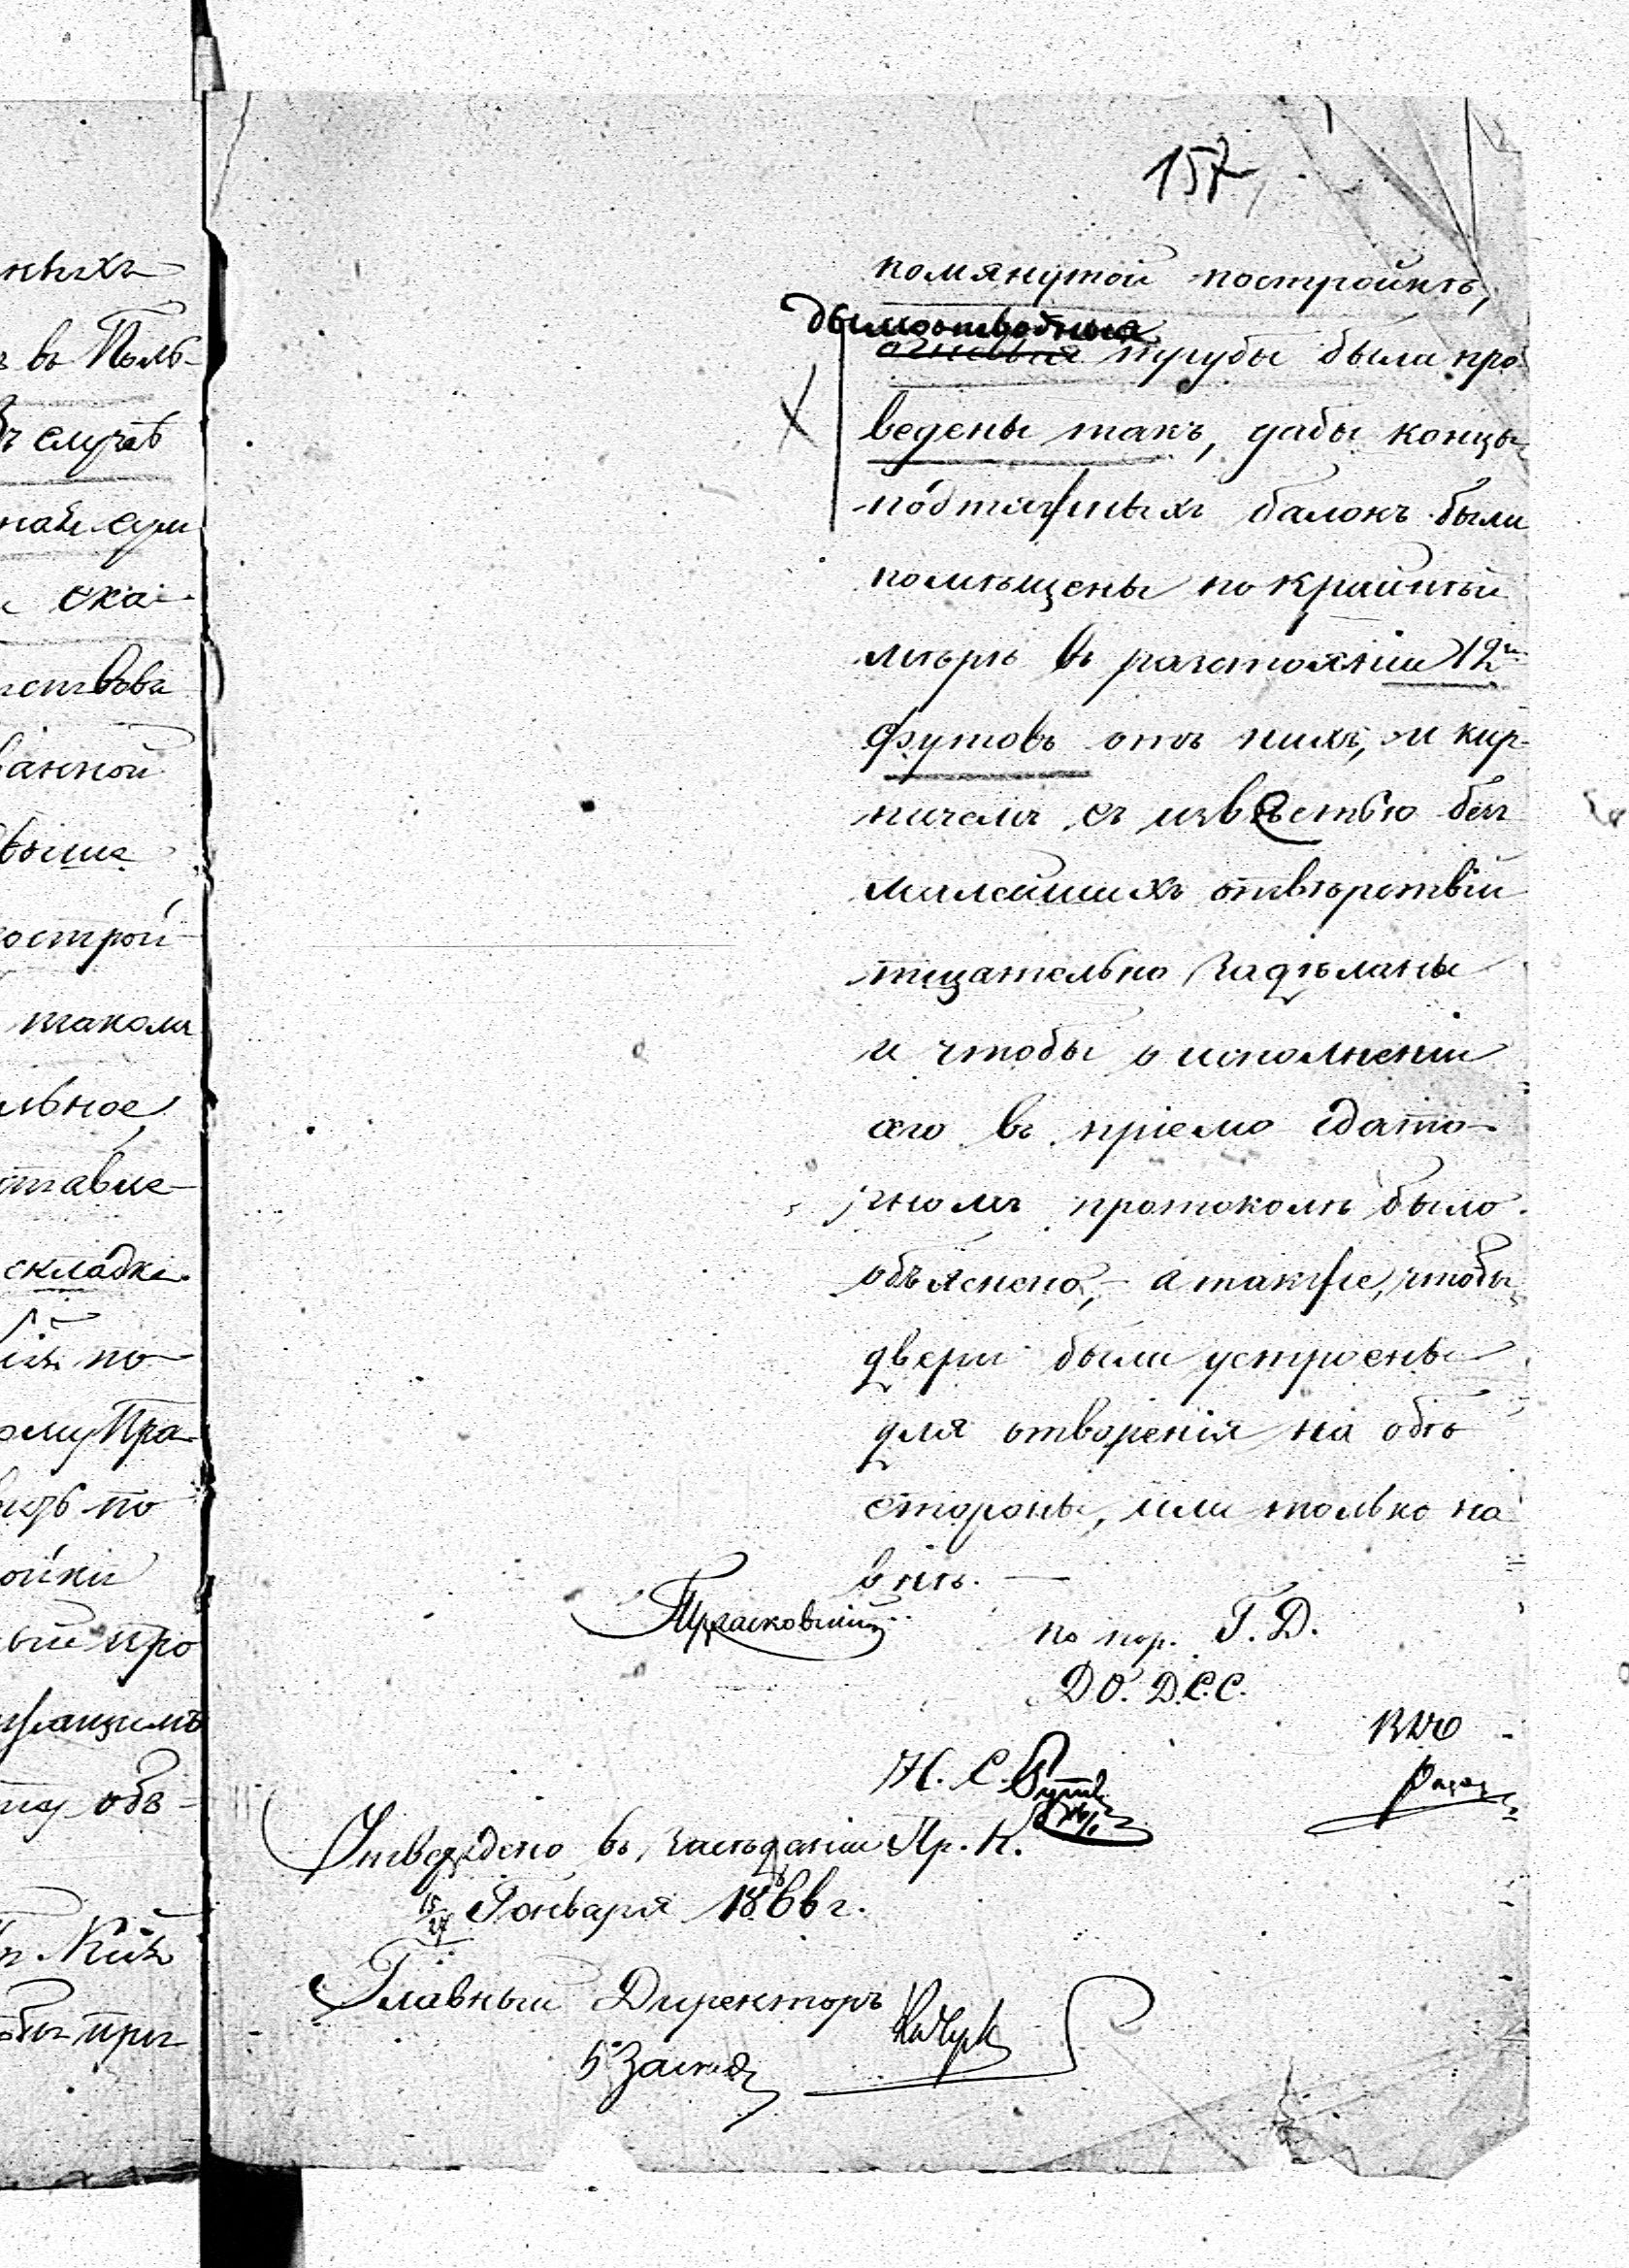 157
помянутой постройкѣ,
дымоотводныя
огневыя трубы были про-
ведены такъ, дабы концы
подтяжныхъ балокъ были
помѣщены по крайнѣй
мѣрѣ въ разстояніи 12
футовъ отъ нихъ, и кир-
пичемъ съ известью безъ
малейшихъ отвѣрствій
тщательно задѣланы
и чтобы о исполненіи
сего въ пріемо сдато-
чномъ протоколѣ было
объяснено, – а также, чтобы
двери были устроены
для отворенія на обѣ
стороны, или только на
внѣ. —
по пор. Г. Д.
Д О. Д. С. С.
Н. С.
Утверждено въ засѣданіи Пр. К.
15/27 Января 1866 г.
Главный Директоръ
ныхъ
въ Поль-
случаѣ
ска-
ванной
выше
построй-
такомъ
льное
ставле-
складки
по-
ому Пра-
по
ойки
про
обѣ-
при